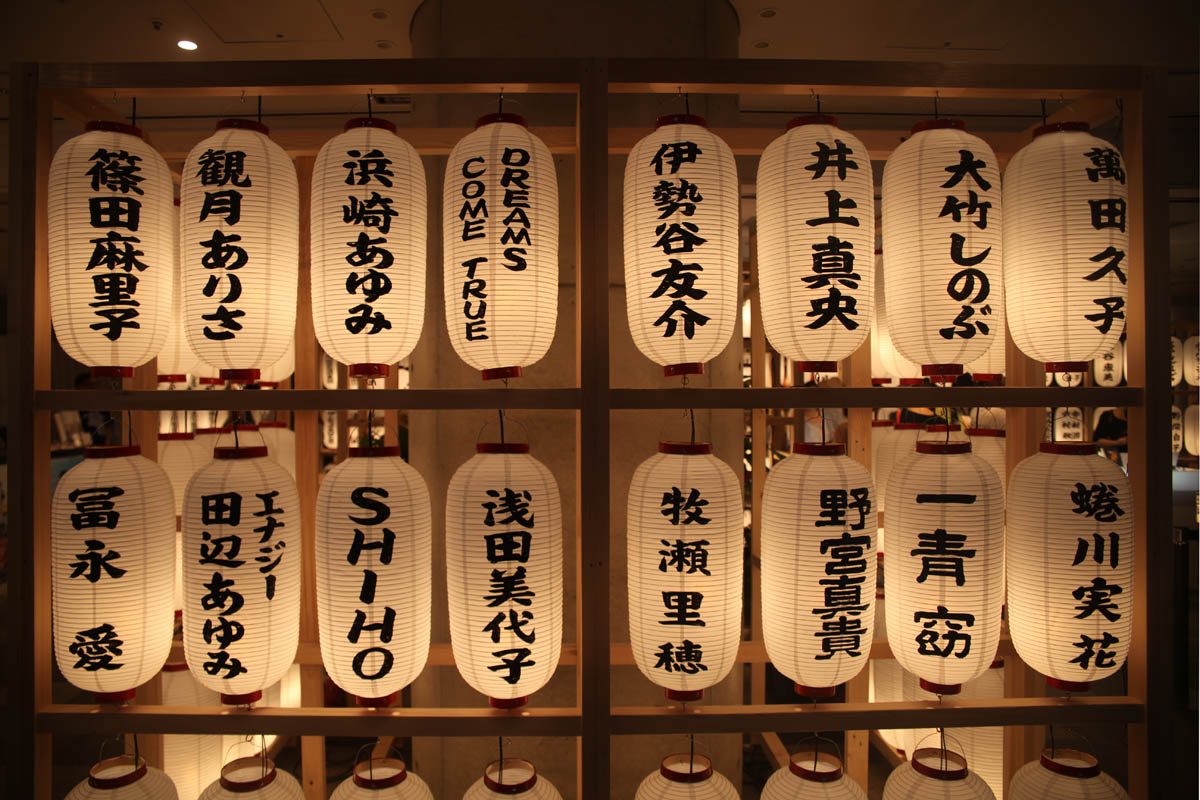 篠田麻里子
観月ありさ
浜崎あゆみ
DREAMS
COME TRUE
伊勢谷友介
井上真央
大竹しのぶ
萬田久子
冨永愛
エナジー
田辺あゆみ
SHIHO
浅田美代子
牧瀬里穂
野宮真貴
一青窈
蜷川実花